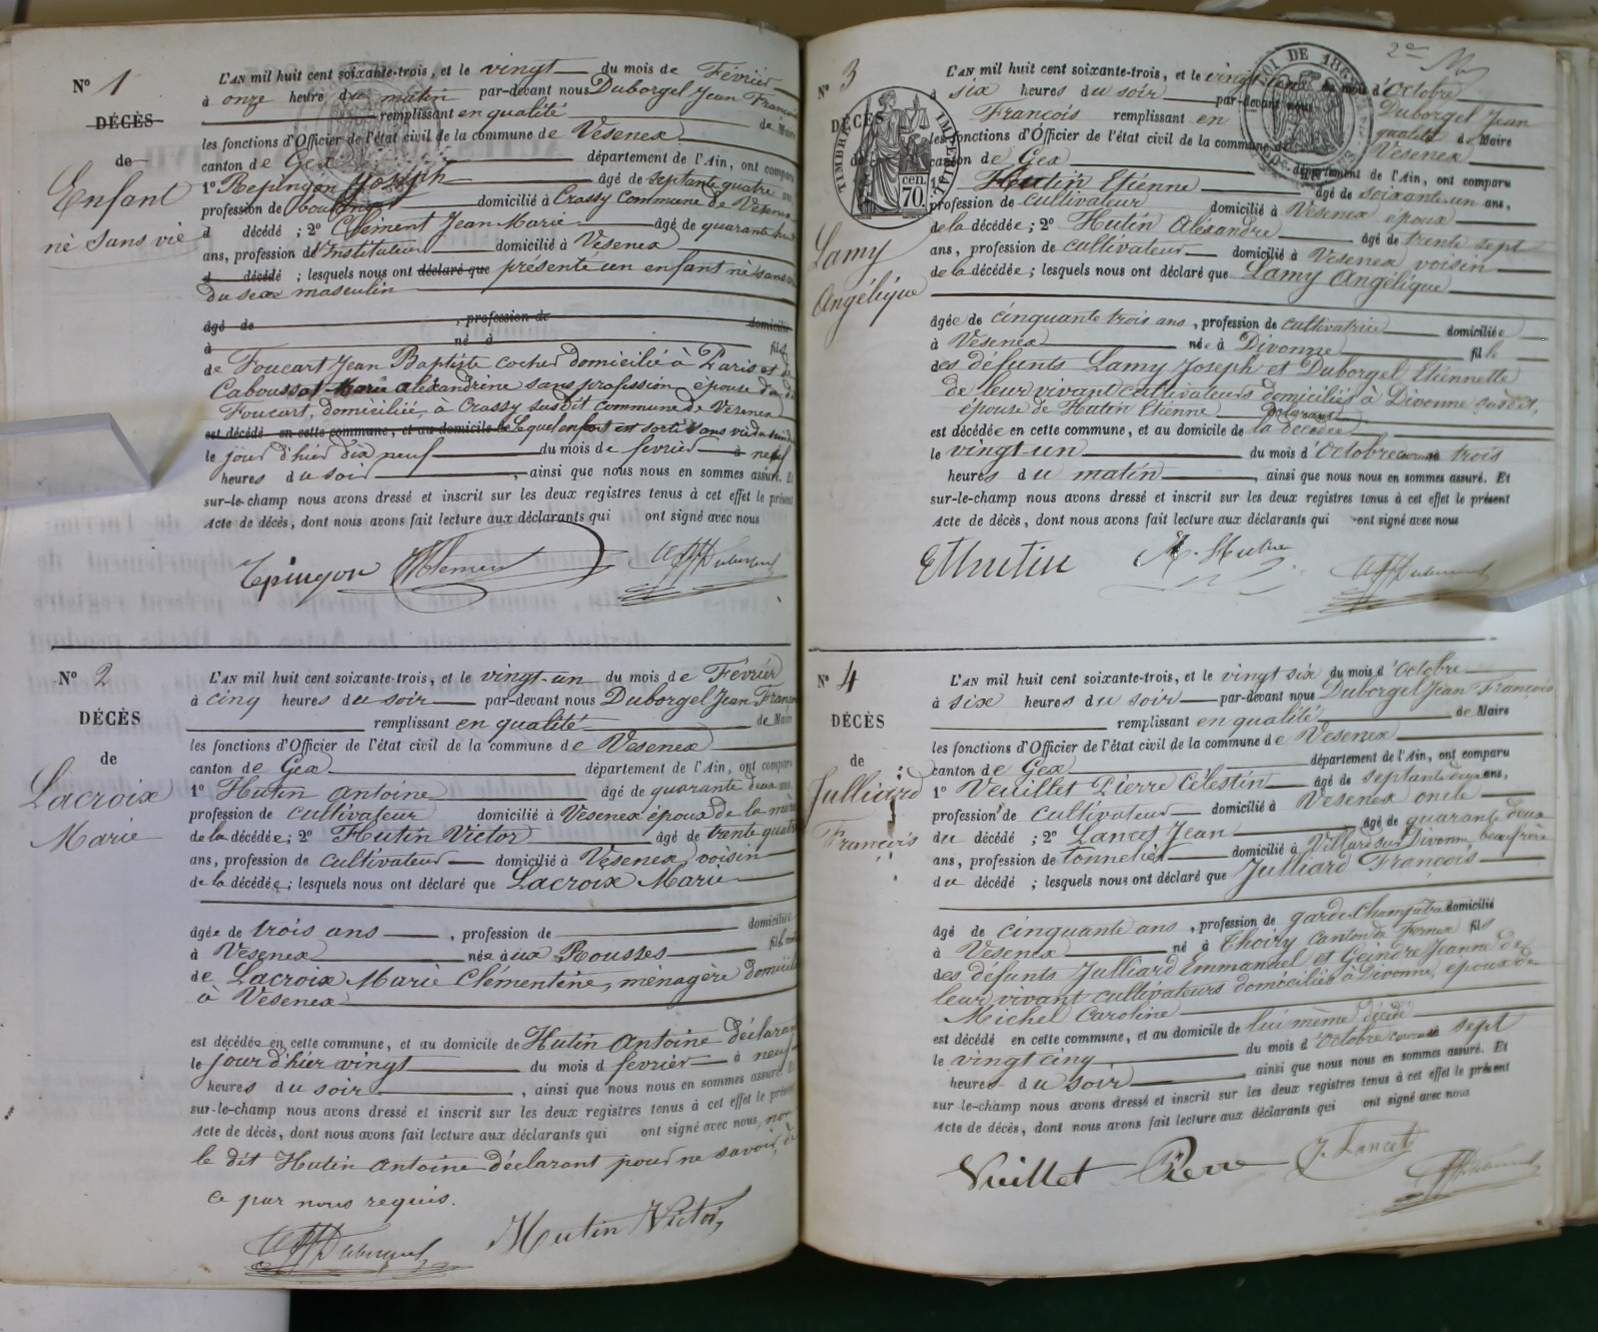 N° 1
DÉCÈS
de
Enfant
né sans vie
L'AN mil huit cent soixante-trois, et le vingt du mois de Février
à onze heure du matin par-devant nous Duborgel Jean François
remplissant en qualité de Maire
les fonctions d'Officier de l'état civil de la commune de Vesenex
canton de Gex département de l'Ain, ont comparu
1° Repingon Joseph âgé de septante quatre ans
profession de domicilié à Crassy Commune de Vesenex
d décédé ; 2° Clément Jean Marie âgé de quarante huit
ans, profession d'Instituteur domicilié à Vesenex
d décédé ; lesquels nous ont déclaré que présenté un enfant né sans vie
du sexe masculin
âgé de , profession de domicilié
à né à fils
de Foucart Jean Baptiste cocher domicilié à Paris et de
Caboussat Marie alexandrine sans profession, épouse du dit
Foucart, domiciliée à Crassy susdit commune de Vesenex
est décédé en cette commune, et au domicile de Lequel enfant est sorti sans vie du sein de
le jour d'hier dix neuf du mois de fevrier à neuf
heures du soir , ainsi que nous nous en sommes assuré. Et
sur-le-champ nous avons dressé et inscrit sur les deux registres tenus à cet effet le présent
Acte de décès, dont nous avons fait lecture aux déclarants qui ont signé avec nous
N° 2
DÉCÈS
de
Lacroix
Marie
L'AN mil huit cent soixante-trois, et le vingt-un du mois de Février
à cinq heures du soir par-devant nous Duborgel Jean François
remplissant en qualité de Maire
les fonctions d'Officier de l'état civil de la commune de Vesenex
canton de Gex département de l'Ain, ont comparu
1° Hutin antoine âgé de quarante deux ans,
profession de cultivateur domicilié à Vesenex époux de la mère
de la décédée ; 2° Hutin Victor âgé de trente quatre
ans, profession de cultivateur domicilié à Vesenex voisin
de la décédée ; lesquels nous ont déclaré que Lacroix Marie
âgée de trois ans , profession de domiciliée
à Vesenex née aux Rousses fille
de Lacroix Marie Clémentine, ménagère domiciliée
à Vesenex
est décédée en cette commune, et au domicile de Hutin Antoine déclarant
le jour d'hier vingt du mois d fevrier à neuf
heures du soir , ainsi que nous nous en sommes assuré. Et
sur-le-champ nous avons dressé et inscrit sur les deux registres tenus à cet effet le présent
Acte de décès, dont nous avons fait lecture aux déclarants qui ont signé avec nous, non
le dit Hutin antoine déclarant pour ne savoir, de
ce par nous requis.
Hutin Victor
2e
N° 3
DÉCÈS
de
Lamy
Angélique
TIMBRE IMPERIAL
70 cen.
LOI DE 1862
L'AN mil huit cent soixante-trois, et le vingt du mois d'Octobre
à six heures du soir par-devant nous Duborgel Jean
François remplissant en qualité de Maire
les fonctions d'Officier de l'état civil de la commune de Vesenex
canton de Gex département de l'Ain, ont comparu
1° Hutin Etienne âgé de soixante un ans,
profession de cultivateur domicilié à Vesenex époux
de la décédée ; 2° Hutin Alexandre âgé de trente sept
ans, profession de cultivateur domicilié à Vesenex voisin
de la décédée ; lesquels nous ont déclaré que Lamy Angélique
âgée de cinquante trois ans , profession de cultivatrice domiciliée
à Vesenex née à Divonne fille
des défunts Lamy Joseph et Duborgel Etiennette
de leur vivant cultivateurs domiciliés à Divonne susdit,
épouse de Hutin Etienne déclarant
est décédée en cette commune, et au domicile de la décédée
le vingt-un du mois d'Octobre courant à trois
heures du matin , ainsi que nous nous en sommes assuré. Et
sur-le-champ nous avons dressé et inscrit sur les deux registres tenus à cet effet le présent
Acte de décès, dont nous avons fait lecture aux déclarants qui ont signé avec nous
EHutin A. Hutin
N° 4
DÉCÈS
de
Julliard
François
L'AN mil huit cent soixante-trois, et le vingt six du mois d'Octobre
à six heures du soir par-devant nous Duborgel Jean François
remplissant en qualité de Maire
les fonctions d'Officier de l'état civil de la commune de Vesenex
canton de Gex département de l'Ain, ont comparu
1° Vuillet Pierre Célestin âgé de septante deux ans,
profession de cultivateur domicilié à Vesenex oncle
du décédé ; 2° Lancet Jean âgé de quarante deux
ans, profession de tonnelier domicilié à Villard sur Divonne beaufrère
du décédé ; lesquels nous ont déclaré que Julliard François
âgé de cinquante ans , profession de garde Champêtre domicilié
à Vesenex né à Thoiry canton de Fernex fils
des défunts Julliard Emmanuel et Geindre Jeanne de
leur vivant cultivateurs domiciliés à Divonne, époux de
Michel Caroline
est décédé en cette commune, et au domicile de lui même décédé
le vingt cinq du mois d'Octobre courant à sept
heures du soir , ainsi que nous nous en sommes assuré. Et
sur-le-champ nous avons dressé et inscrit sur les deux registres tenus à cet effet le présent
Acte de décès, dont nous avons fait lecture aux déclarants qui ont signé avec nous
Vuillet Pierre J. Lancet